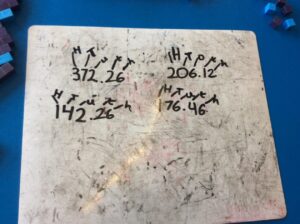 H T U t h
372.26
H T U t h
206.12
H T U t h
142.26
H T U t h
176.46